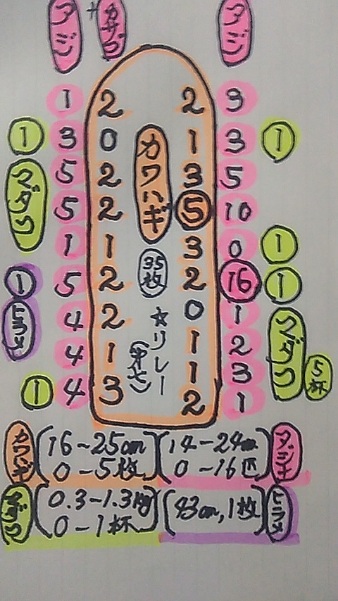 アジ + カサゴ アジ
1 2 2 3
1 3 0 カワハギ 1 3 1
マダコ 5 2 3 5
5 2 5 10
1 1 35枚 3 0 1
1 5 2 2 16 1
ヒラメ 4 2 ☆リレー 0 1 マダコ 5杯
4 1 1 2
1 4 3 1 3
2 1
カワハギ (16~25cm 0-5枚) (14-24cm 0-16匹) アジ
マダコ (0.3-1.3kg 0-1杯) (43cm,1枚) ヒラメ